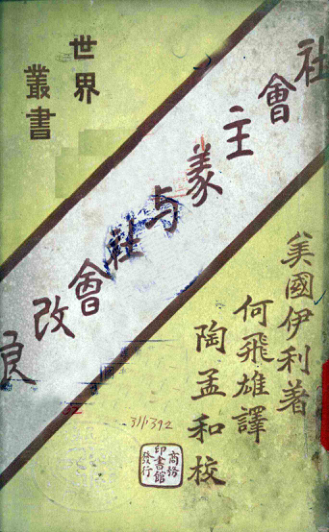 世界
叢書
社會主義与社會改良
美國伊利著
何飛雄譯
陶孟和校
311392
商務
印書館
發行